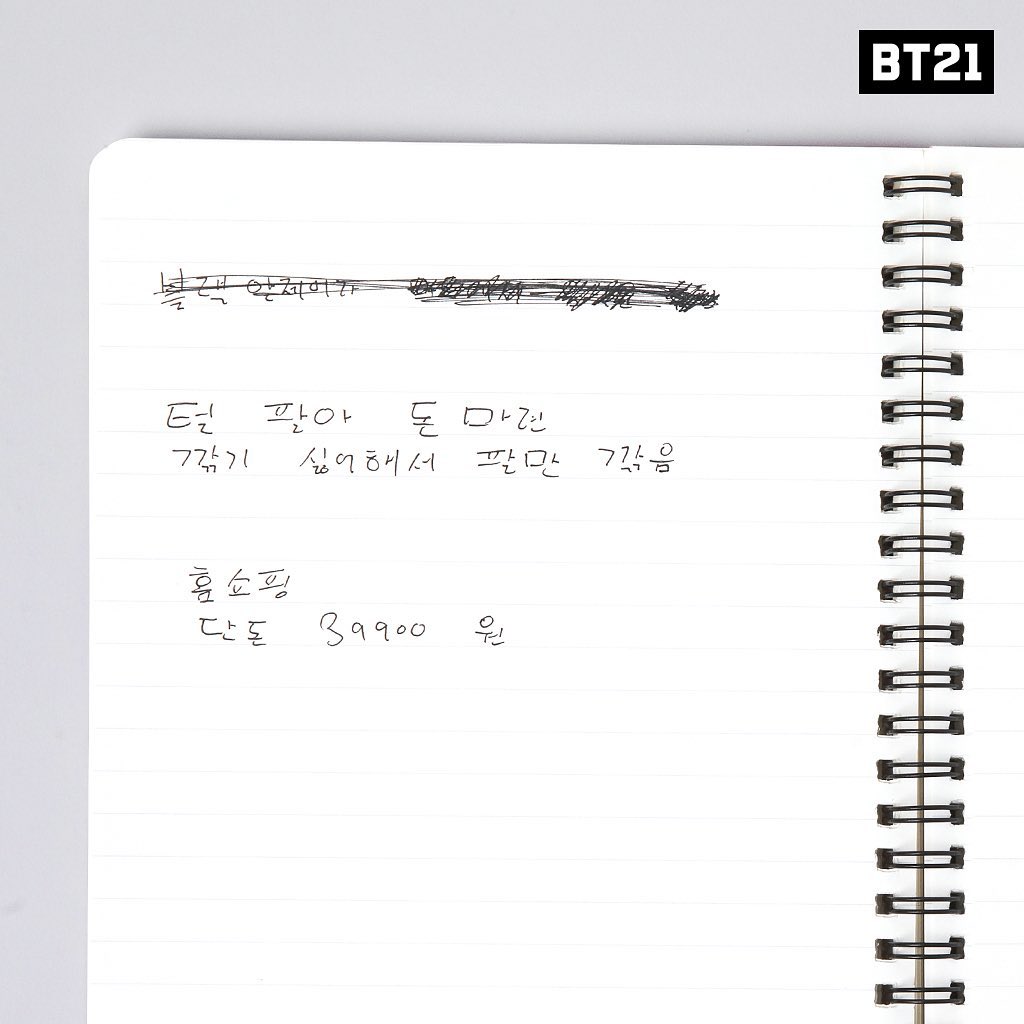 BT21
블랙 알제이가
털 팔아 돈 마련
깎기 싫어해서 팔만 깎음
홈쇼핑
단돈 39900 원